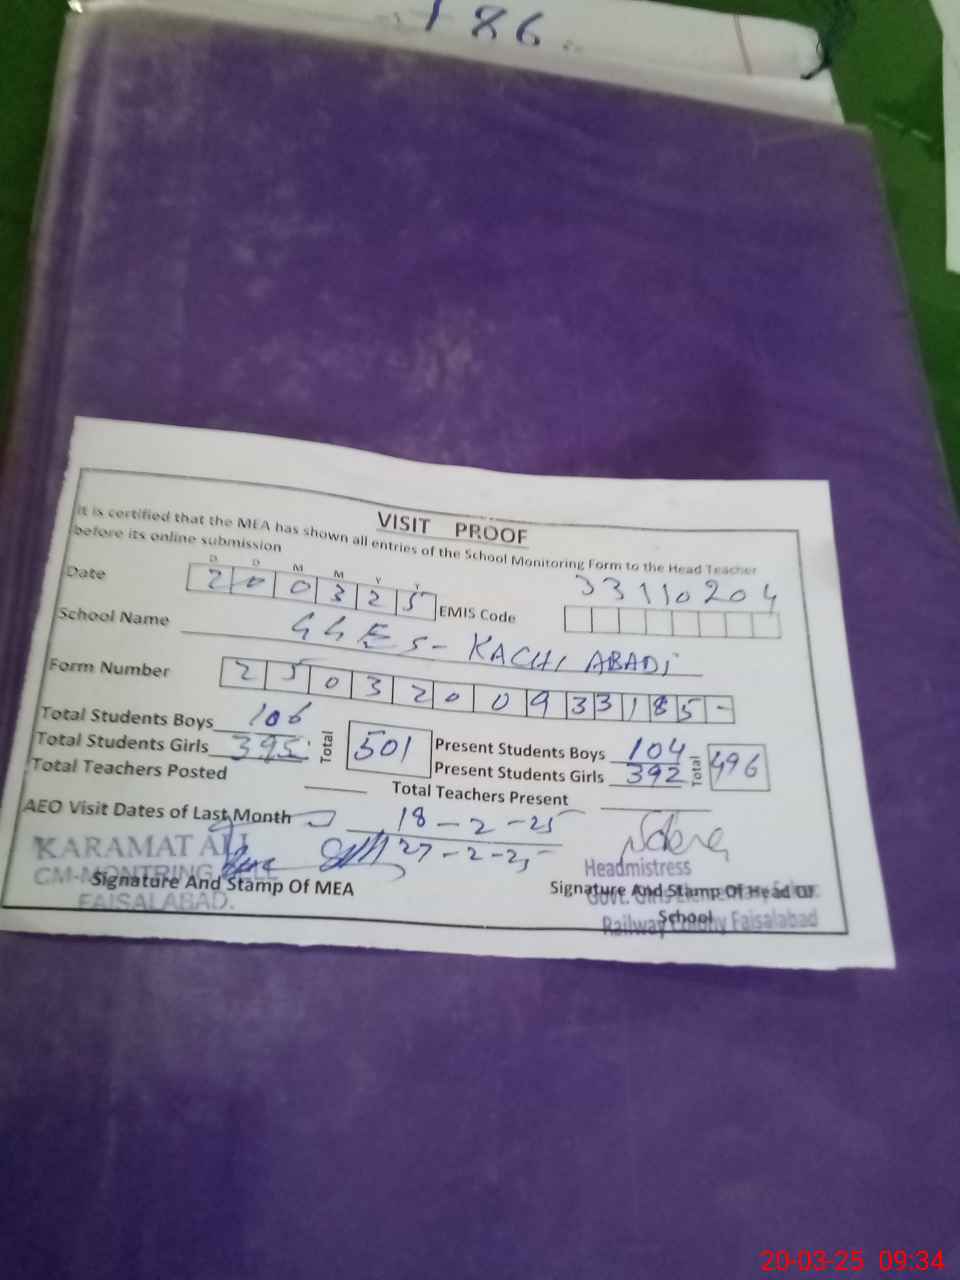 786
VISIT PROOF
It is certified that the MEA has shown all entries of the School Monitoring Form to the Head Teacher
before its online submission
D D M M Y Y
Date 200325 EMIS Code 33110204
School Name GGES-KACHI ABADI
Form Number 2503200933185-
Total Students Boys 106 Total 501 Present Students Boys 104 Total 496
Total Students Girls 395 Present Students Girls 392
Total Teachers Posted Total Teachers Present
AEO Visit Dates of Last Month 18-2-25
27-2-25
KARAMAT ALI
CM-MONTRING
FAISALABAD.
Signature And Stamp Of MEA
Headmistress
Govt. Girls Elementary
Railway Colony Faisalabad
Signature And Stamp Of Head Of
School
20-03-25 09:34